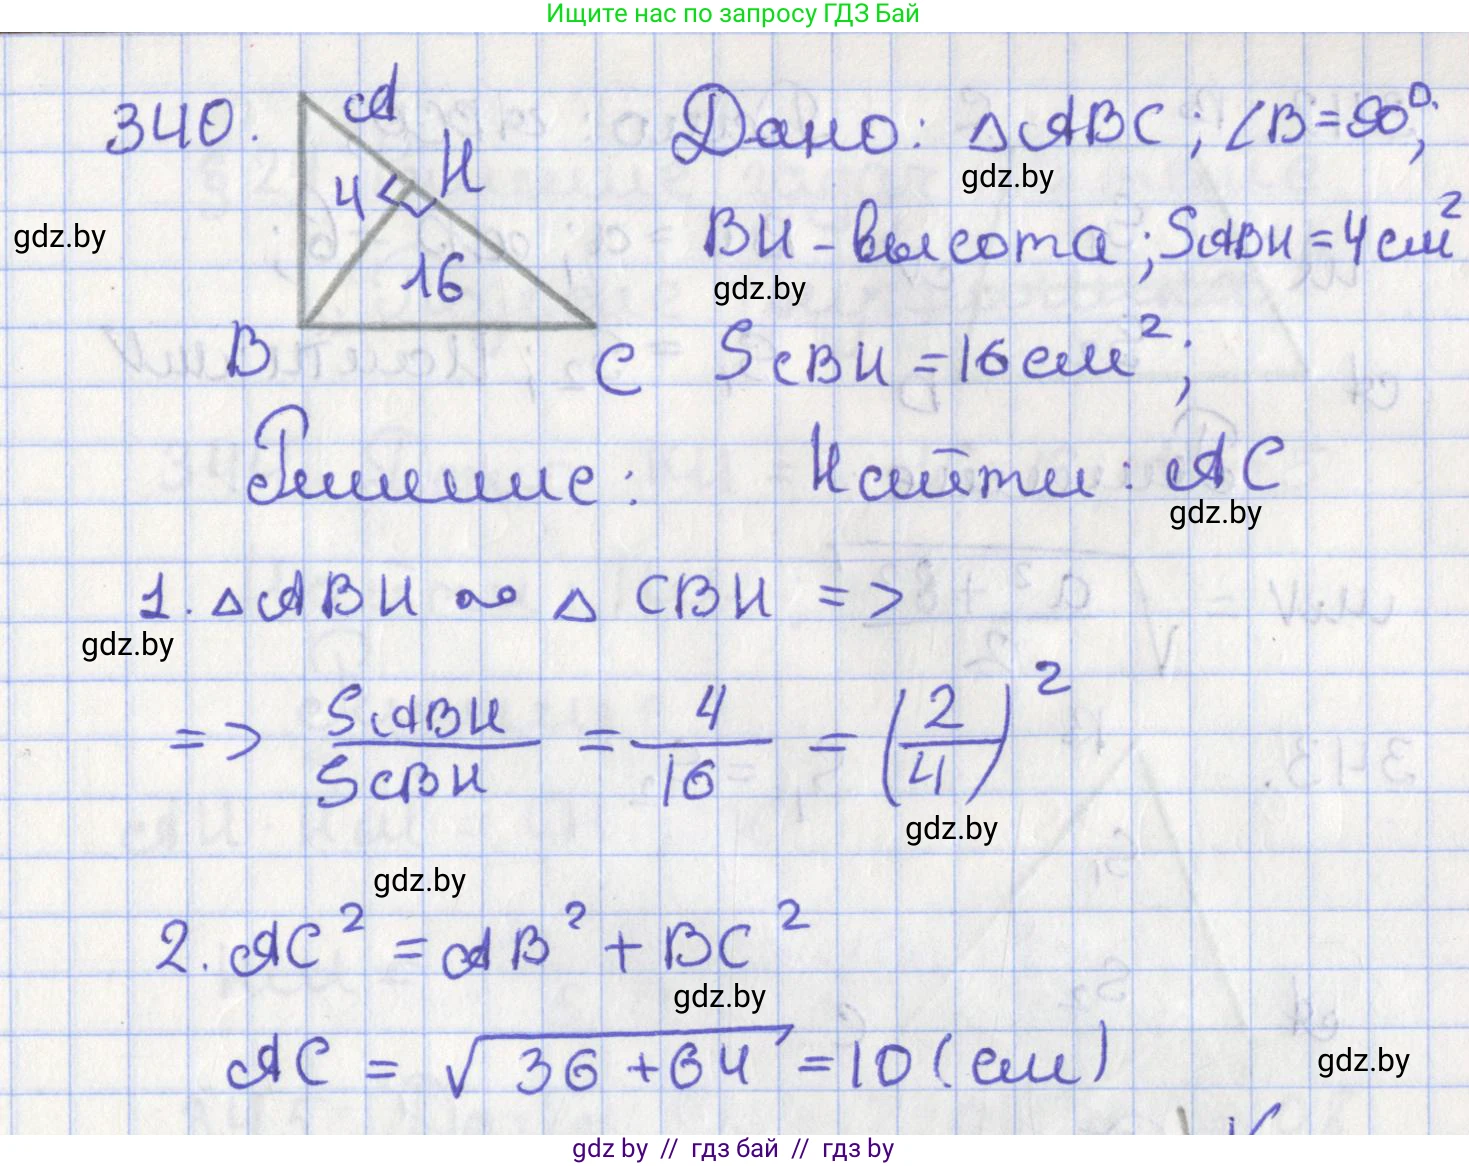 Ищите нас по запросу ГДЗ Бай
340.
A
H
4
16
B
C
Дано: △ABC; ∠B=90°;
gdz.by
gdz.by
BH - высота; SABH = 4 см²
gdz.by
SCBH = 16 см²;
Решение:
Найти: AC
gdz.by
1. △ABH ∾ △ CBH =>
gdz.by
=> SABH / SCBH = 4/16 = (2/4)²
gdz.by
gdz.by
2. AC² = AB² + BC²
gdz.by
AC = √36 + 64 = 10 (см)
gdz.by
gdz.by // гдз бай // гдз by